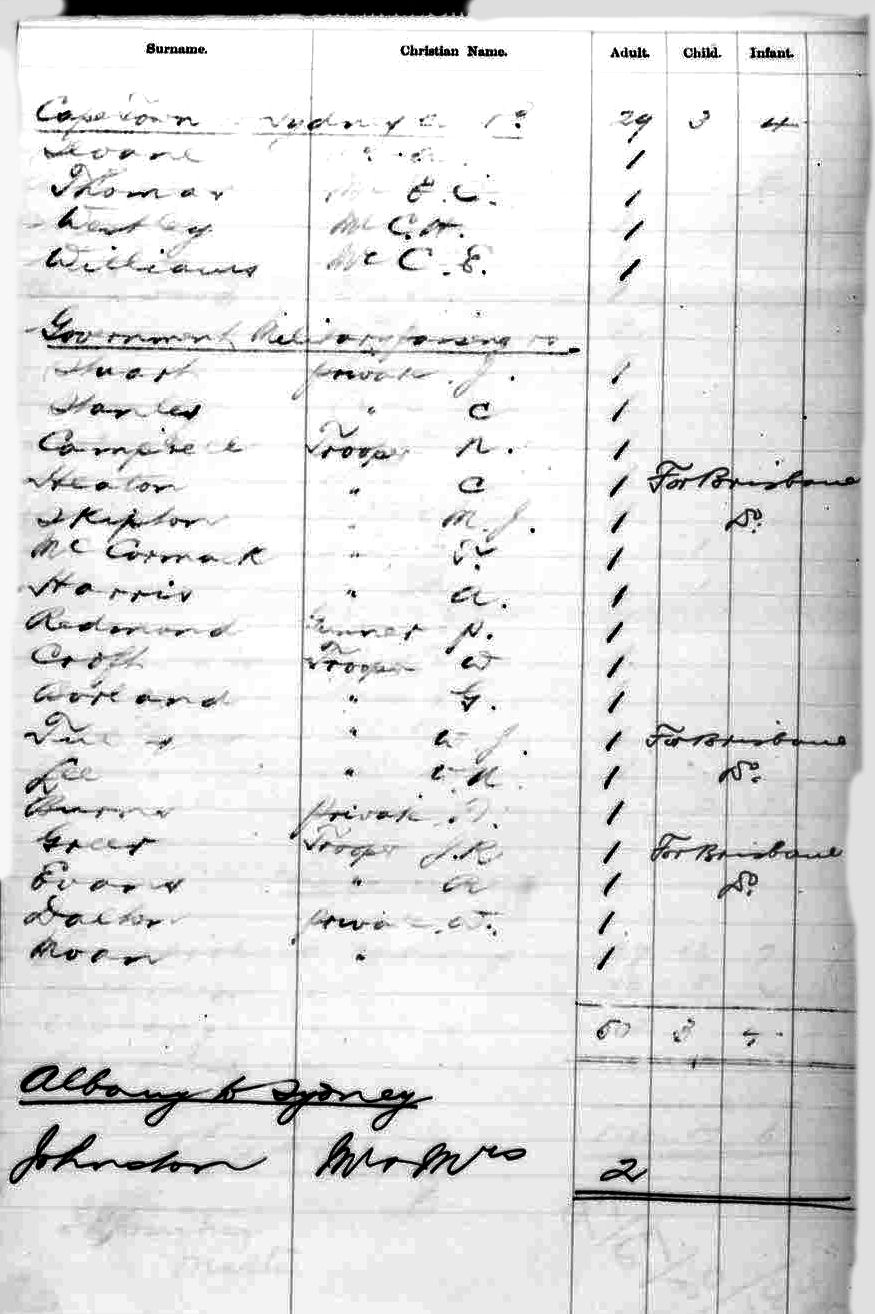 Surname. Christian Name. Adult. Child. Infant.
Cape Town Sydney 29 3 4
1
Thomas Mr E. C. 1
Westley Mr C. H. 1
Williams Mr C. E. 1
Government Military passengers
Stuart private J. 1
Stanley " C 1
Campbell Trooper R. 1
Heaton " C 1 For Brisbane
Skipton " M. J. 1 Do.
McCormack " 1
Harris " A. 1
Redmond Gunner P. 1
Croft Trooper W 1
" G. 1
" W J. 1 For Brisbane
Lee " 1 Do.
Burns private 1
Greer Trooper J. R 1 For Brisbane
Evans " A 1 Do.
Dalton private W. 1
Moan " 1
3
Albany to Sydney
Johnston Mr & Mrs 2